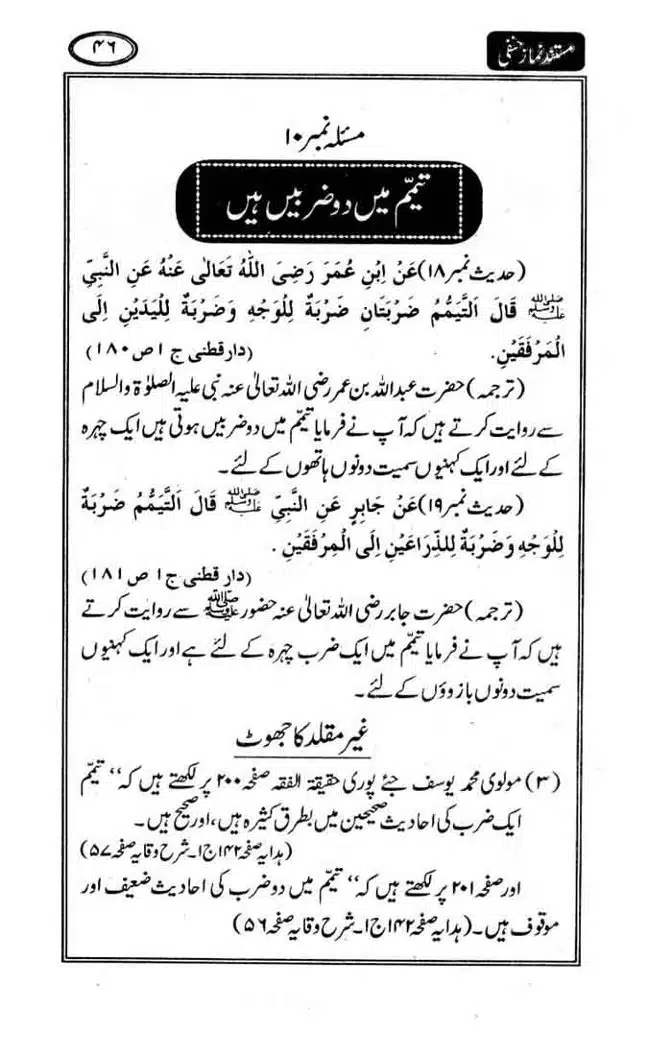 مستند نماز حنفی
۴۶
مسئلہ نمبر ۱۰
تیمّم میں دو ضربیں ہیں
(حدیث نمبر ۱۸) عَنْ اِبْنِ عُمَرَ رَضِیَ اللہُ تَعَالٰی عَنْہُ عَنِ النَّبِیِّ
صلی اللہ علیہ وسلم قَالَ اَلتَّیَمُّمُ ضَرْبَتَانِ ضَرْبَةٌ لِلْوَجْهِ وَضَرْبَةٌ لِلْیَدَیْنِ اِلَی
الْمَرْفَقَیْنِ. (دار قطنی ج ۱ ص ۱۸۰)
(ترجمہ) حضرت عبداللہ بن عمر رضی اللہ تعالیٰ عنہ نبی علیہ الصلوٰۃ والسلام
سے روایت کرتے ہیں کہ آپ نے فرمایا تیمّم میں دو ضربیں ہوتی ہیں ایک چہرہ
کے لئے اور ایک کہنیوں سمیت دونوں ہاتھوں کے لئے۔
(حدیث نمبر ۱۹) عَنْ جَابِرٍ عَنِ النَّبِیِّ صلی اللہ علیہ وسلم قَالَ اَلتَّیَمُّمُ ضَرْبَةٌ
لِلْوَجْهِ وَضَرْبَةٌ لِلذِّرَاعَیْنِ اِلَی الْمِرْفَقَیْنِ.
(دار قطنی ج ۱ ص ۱۸۱)
(ترجمہ) حضرت جابر رضی اللہ تعالیٰ عنہ حضور صلی اللہ علیہ وسلم سے روایت کرتے
ہیں کہ آپ نے فرمایا تیمّم میں ایک ضرب چہرہ کے لئے ہے اور ایک کہنیوں
سمیت دونوں بازوؤں کے لئے۔
غیر مقلد کا جھوٹ
(۳) مولوی محمد یوسف جے پوری حقیقۃ الفقہ صفحہ ۲۰۰ پر لکھتے ہیں کہ ‘‘ تیمّم
ایک ضرب کی احادیث صحیحین میں بطرق کثیرہ ہیں، اور صحیح ہیں۔
(ہدایہ صفحہ ۱۴۲ ج ۱۔ شرح وقایہ صفحہ ۵۷)
اور صفحہ ۲۰۱ پر لکھتے ہیں کہ ‘‘ تیمّم میں دو ضرب کی احادیث ضعیف اور
موقوف ہیں۔ (ہدایہ صفحہ ۱۴۲ ج ۱۔ شرح وقایہ صفحہ ۵۶)